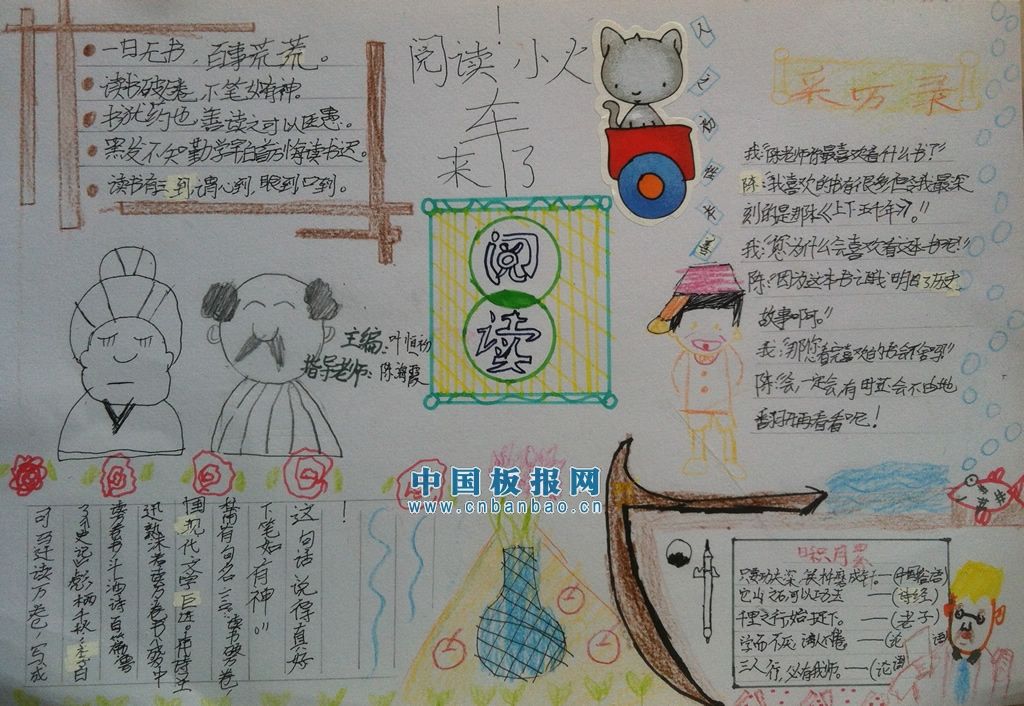 一日无书，百事荒荒。
读书破万卷，下笔如有神。
书犹药也，善读之可以医愚。
黑发不知勤学早白首方悔读书迟。
读书有三到谓心到，眼到口到。
阅读小火
车
来了
采访录
我:"陈老师你最喜欢看什么书？"
陈:"我喜欢的书有很多但令我最深
刻的是那本《上下五千年》。"
我:"您为什么会喜欢看这本书呢？"
陈:"因为这本书让我明白了历史
故事啊。"
我:"那您看完喜欢的书会
陈:会，一定会，有时还会不由地
翻开再看看呢！
阅
读
主编:叶恒初
指导老师:陈海霞
中国板报网
www.cnbanbao.cn
！
这句话说得真好
下笔如有神"
甫有句名言:"读书破万卷，
国现代文学巨
读书斗酒诗百篇
司马迁读万卷，写成
日积月累
只要功夫深，铁杵磨成针。
它山之石可以攻玉——(诗经)
千里之行始于足下。——(老子)
学而不厌，诲人不倦——(论语
三人行，必有我师。——(论语